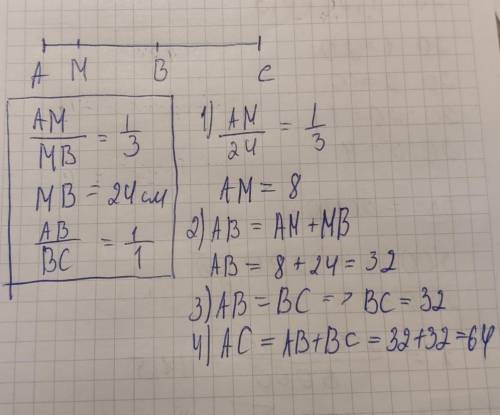 A M B C
AM/MB = 1/3
MB = 24 см
AB/BC = 1/1
1) AM/24 = 1/3
AM = 8
2) AB = AM + MB
AB = 8 + 24 = 32
3) AB = BC => BC = 32
4) AC = AB + BC = 32 + 32 = 64